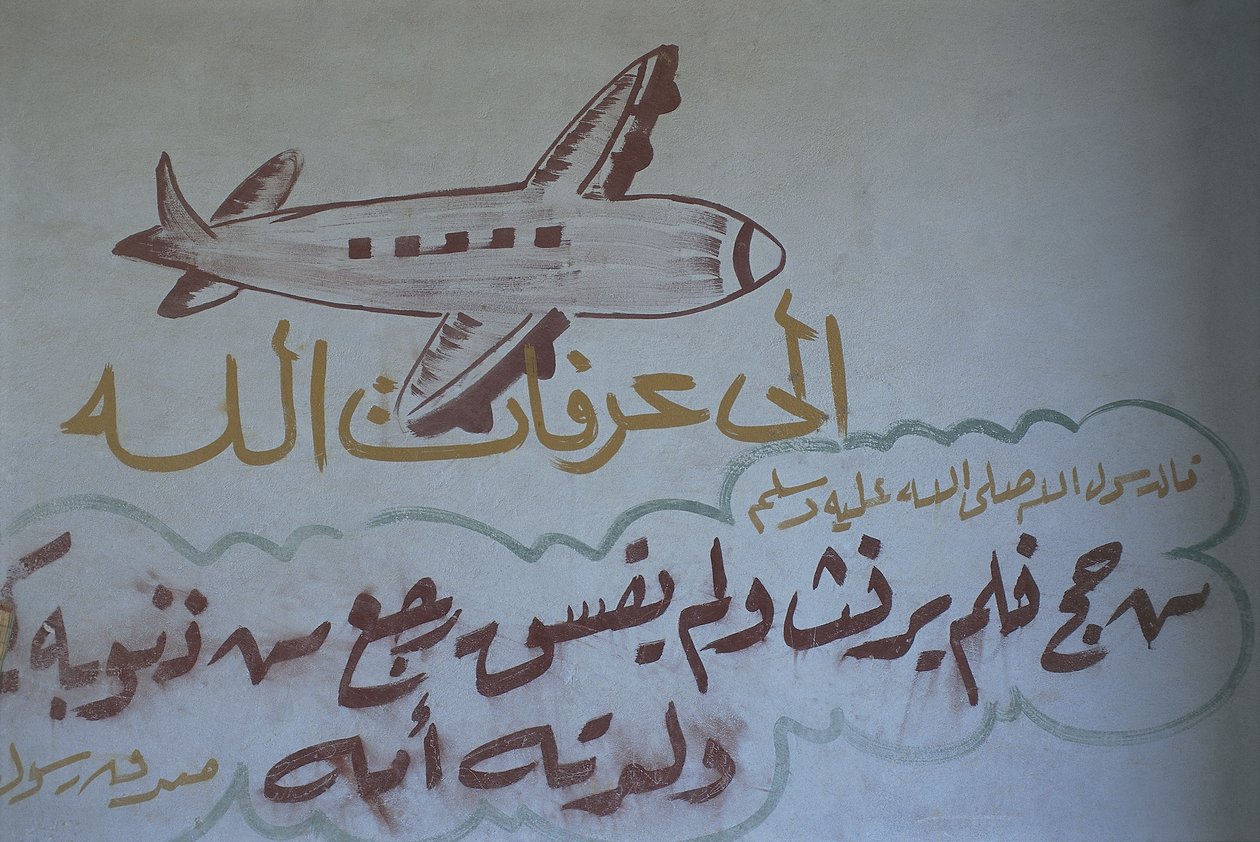 إلى عرفات الله
قال رسول الله صلى الله عليه وسلم
من حج فلم يرفث ولم يفسق رجع من ذنوبه
ولدته أمه
صدق رسول